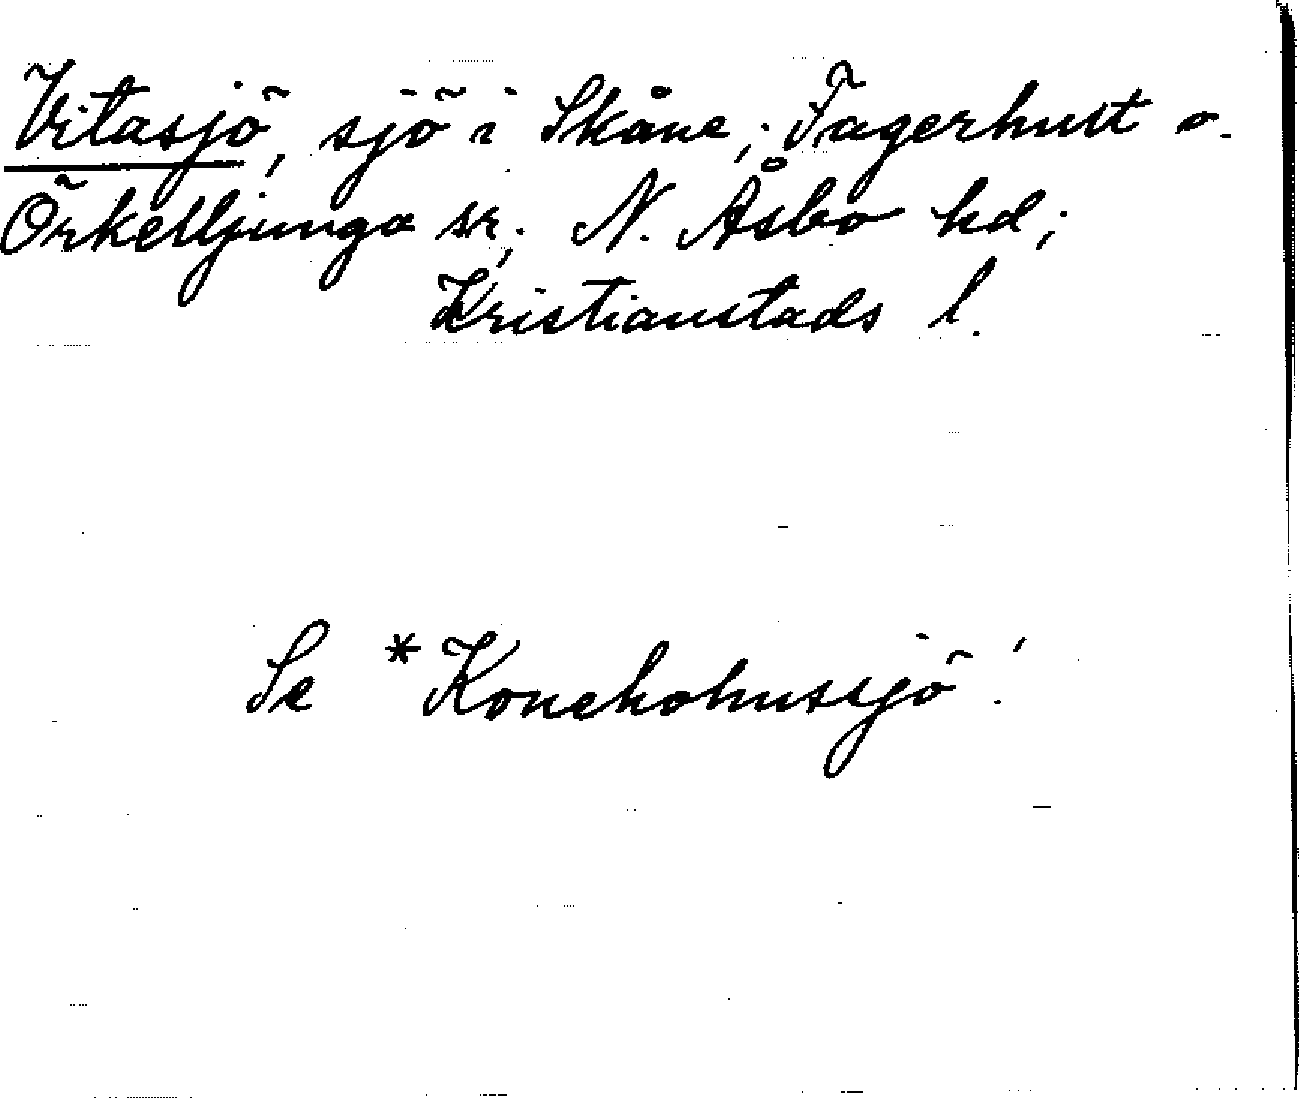 Vitasjö, sjö i Skåne; Fagerhult o.
Örkelljunga sr; N. Åsbo hd;
Kristianstads l.
Se *Konehohussjö!